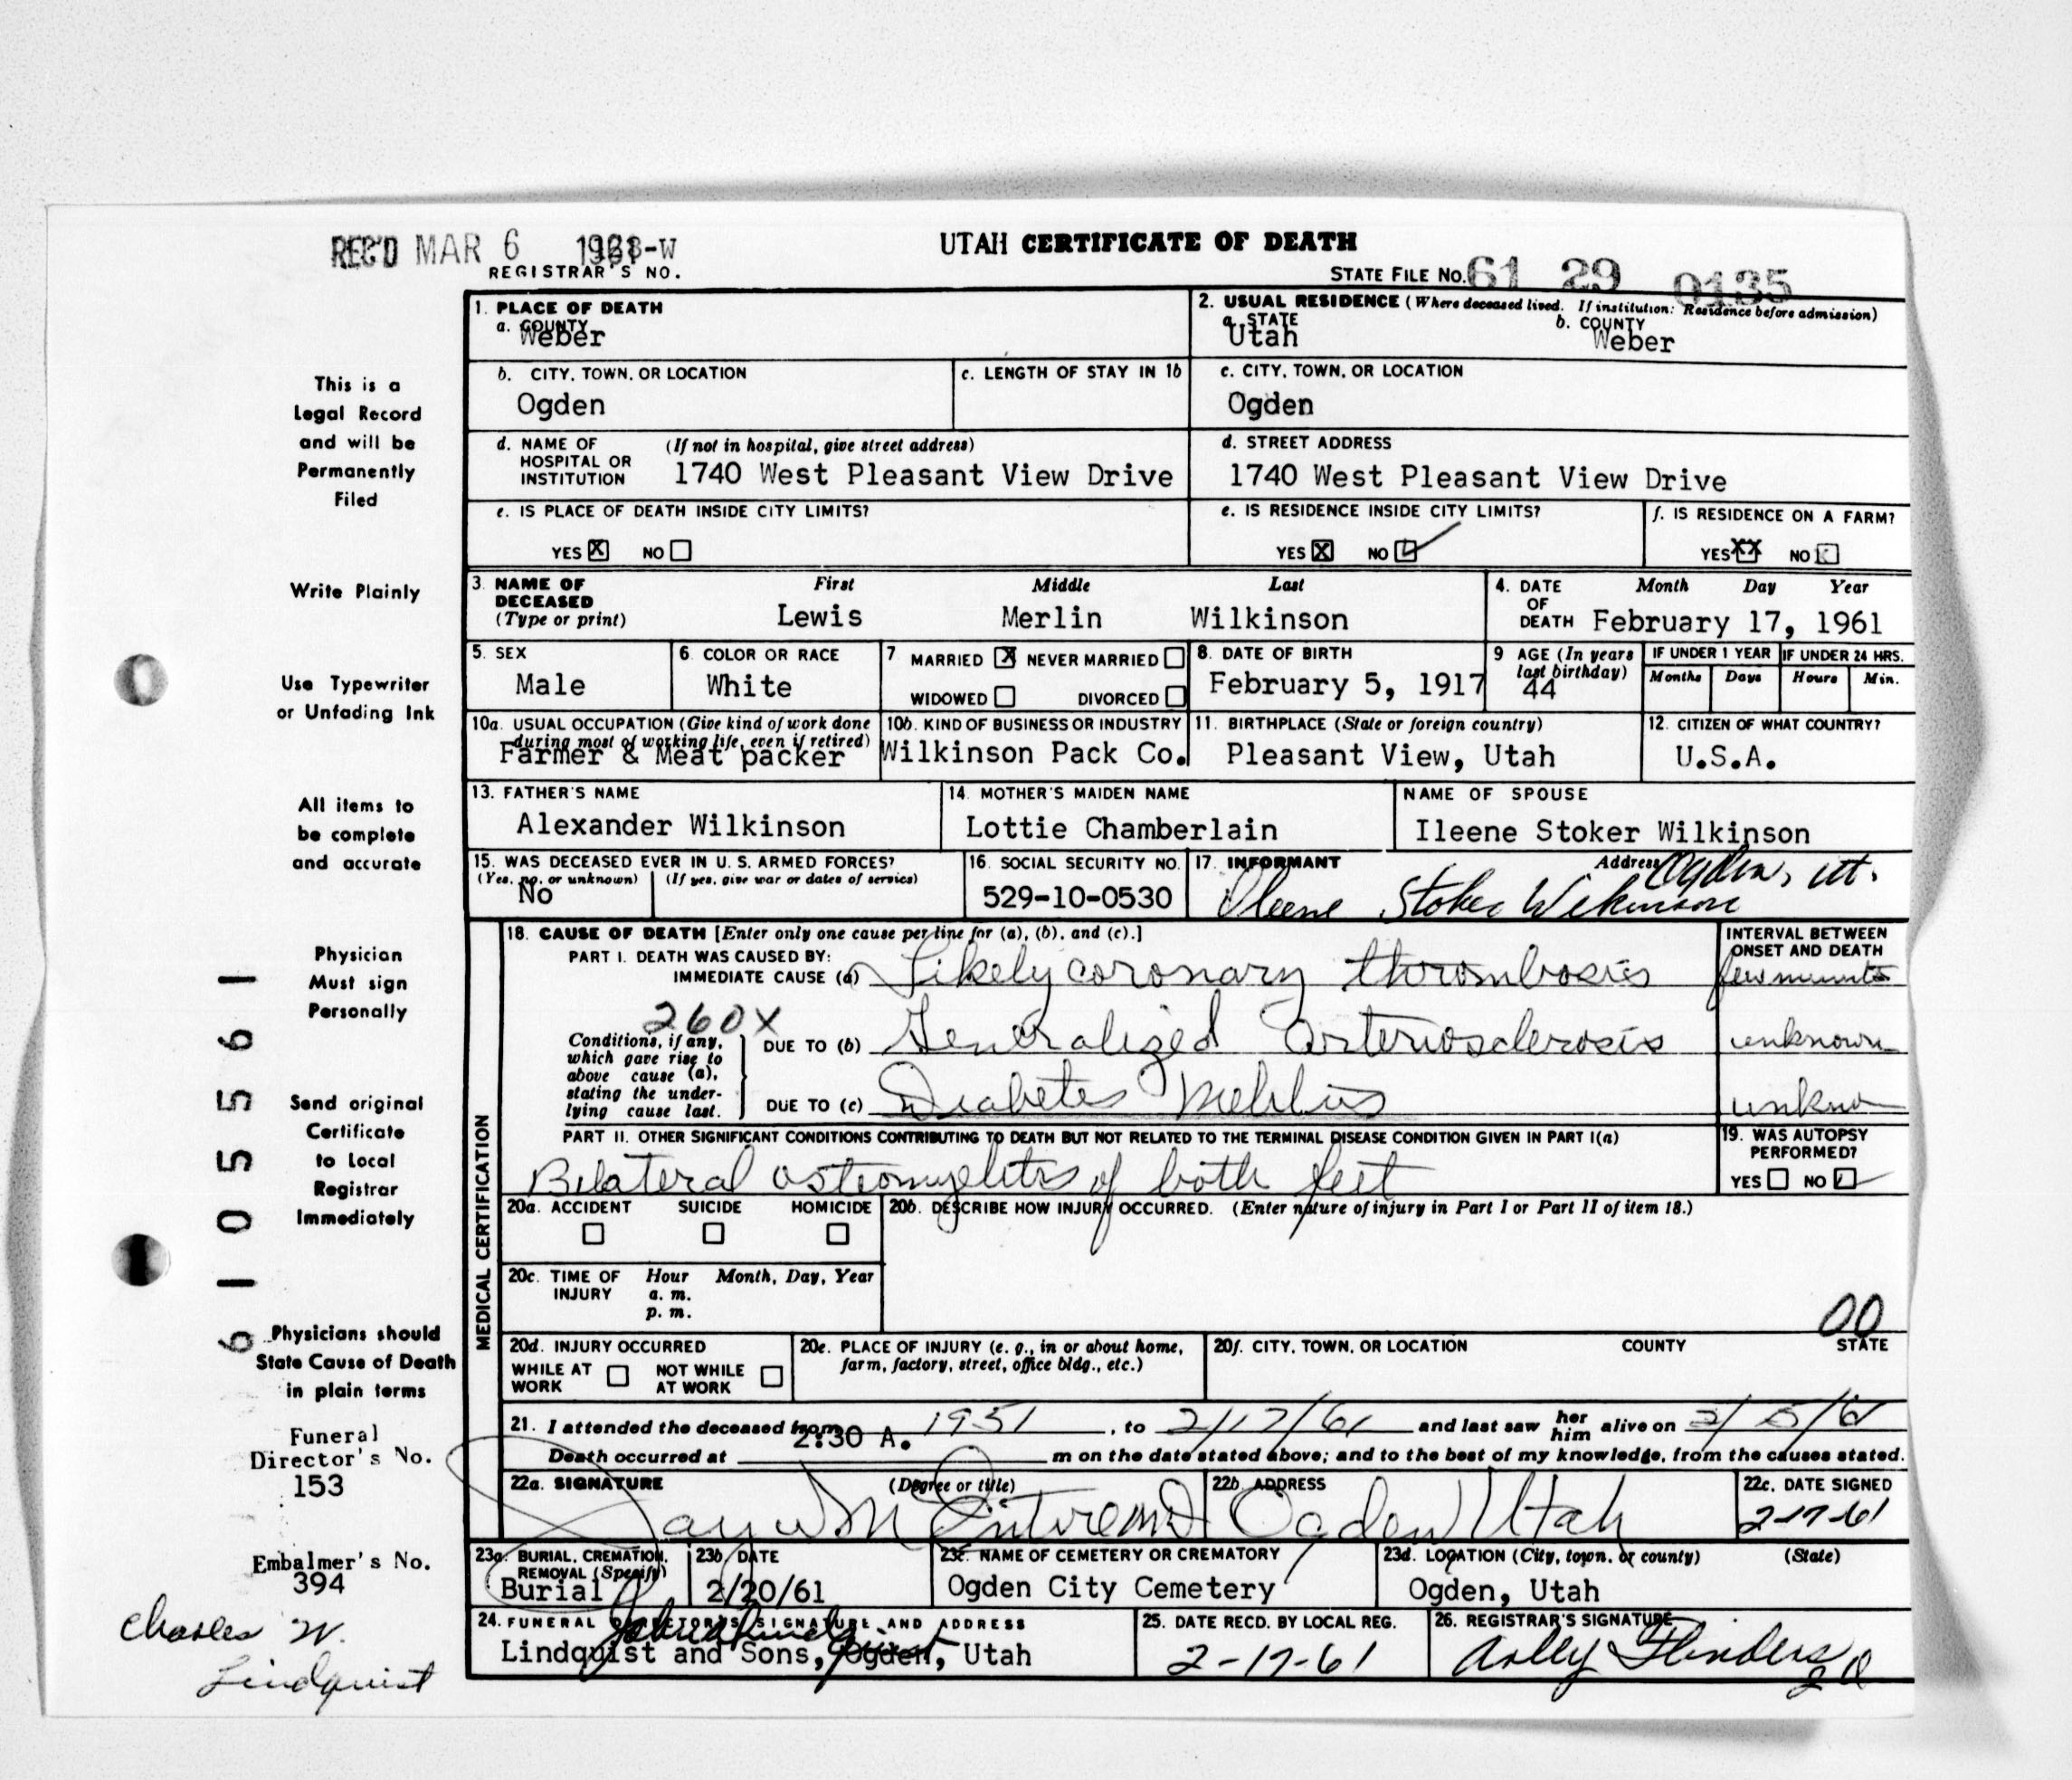 REC'D MAR 6 1961
UTAH CERTIFICATE OF DEATH
REGISTRAR'S NO.
STATE FILE No. 61 29 0135
1. PLACE OF DEATH
a. COUNTY
Weber
2. USUAL RESIDENCE (Where deceased lived. If institution: Residence before admission)
a. STATE
Utah
b. COUNTY
Weber
b. CITY, TOWN, OR LOCATION
Ogden
c. LENGTH OF STAY IN 1b
c. CITY, TOWN, OR LOCATION
Ogden
d. NAME OF HOSPITAL OR INSTITUTION (If not in hospital, give street address)
1740 West Pleasant View Drive
d. STREET ADDRESS
1740 West Pleasant View Drive
e. IS PLACE OF DEATH INSIDE CITY LIMITS?
YES X NO
e. IS RESIDENCE INSIDE CITY LIMITS?
YES X NO
f. IS RESIDENCE ON A FARM?
YES XX NO
3. NAME OF DECEASED (Type or print)
First Middle Last
Lewis Merlin Wilkinson
4. DATE OF DEATH
Month Day Year
February 17, 1961
5. SEX
Male
6. COLOR OR RACE
White
7. MARRIED X NEVER MARRIED
WIDOWED DIVORCED
8. DATE OF BIRTH
February 5, 1917
9 AGE (In years last birthday)
44
IF UNDER 1 YEAR
Months Days
IF UNDER 24 HRS.
Hours Min.
10a. USUAL OCCUPATION (Give kind of work done during most of working life, even if retired)
Farmer & Meat packer
10b. KIND OF BUSINESS OR INDUSTRY
Wilkinson Pack Co.
11. BIRTHPLACE (State or foreign country)
Pleasant View, Utah
12. CITIZEN OF WHAT COUNTRY?
U.S.A.
13. FATHER'S NAME
Alexander Wilkinson
14. MOTHER'S MAIDEN NAME
Lottie Chamberlain
NAME OF SPOUSE
Ileene Stoker Wilkinson
15. WAS DECEASED EVER IN U. S. ARMED FORCES?
(Yes, no, or unknown) (If yes, give war or dates of service)
No
16. SOCIAL SECURITY NO.
529-10-0530
17. INFORMANT Address
Ileene Stoker Wilkinson Ogden, Ut.
MEDICAL CERTIFICATION
18. CAUSE OF DEATH [Enter only one cause per line for (a), (b), and (c).]
INTERVAL BETWEEN ONSET AND DEATH
PART I. DEATH WAS CAUSED BY:
IMMEDIATE CAUSE (a) Likely coronary thrombosis few minutes
260X
Conditions, if any, which gave rise to above cause (a), stating the underlying cause last.
DUE TO (b) Generalized Arteriosclerosis unknown
DUE TO (c) Diabetes Mellitus
PART II. OTHER SIGNIFICANT CONDITIONS CONTRIBUTING TO DEATH BUT NOT RELATED TO THE TERMINAL DISEASE CONDITION GIVEN IN PART I(a)
Bilateral osteomyelitis of both feet
19. WAS AUTOPSY PERFORMED?
YES NO
20a. ACCIDENT SUICIDE HOMICIDE
20b. DESCRIBE HOW INJURY OCCURRED. (Enter nature of injury in Part I or Part II of item 18.)
20c. TIME OF INJURY
Hour Month, Day, Year
a. m.
p. m.
00
20d. INJURY OCCURRED
WHILE AT WORK NOT WHILE AT WORK
20e. PLACE OF INJURY (e. g., in or about home, farm, factory, street, office bldg., etc.)
20f. CITY, TOWN, OR LOCATION COUNTY STATE
21. I attended the deceased from 1951, to 2/17/61 and last saw her him alive on 2/5/61
Death occurred at 2:30 A. m on the date stated above; and to the best of my knowledge, from the causes stated.
22a. SIGNATURE (Degree or title)
22b. ADDRESS
Ogden Utah
22c. DATE SIGNED
2-17-61
23a. BURIAL, CREMATION, REMOVAL (Specify)
Burial
23b. DATE
2/20/61
23c. NAME OF CEMETERY OR CREMATORY
Ogden City Cemetery
23d. LOCATION (City, town, or county) (State)
Ogden, Utah
24. FUNERAL DIRECTOR'S SIGNATURE AND ADDRESS
Lindquist and Sons, Ogden, Utah
25. DATE RECD. BY LOCAL REG.
2-17-61
26. REGISTRAR'S SIGNATURE
This is a
Legal Record
and will be
Permanently
Filed
Write Plainly
Use Typewriter
or Unfading Ink
All items to
be complete
and accurate
Physician
Must sign
Personally
Send original
Certificate
to Local
Registrar
Immediately
Physicians should
State Cause of Death
in plain terms
6105561
Funeral
Director's No.
153
Embalmer's No.
394
Charles W.
Lindquist